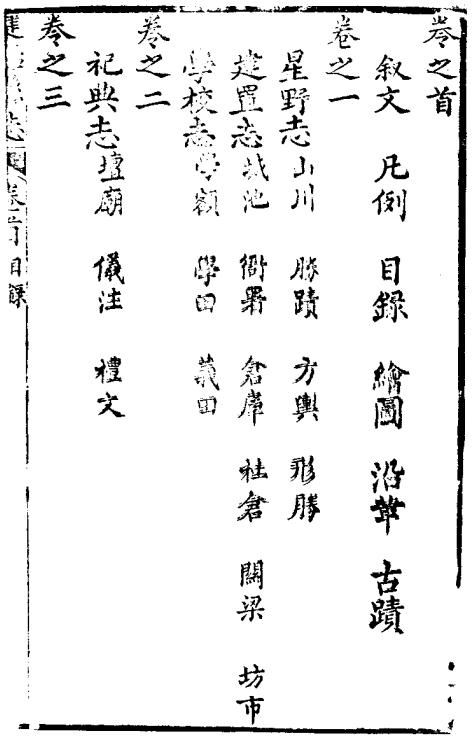 卷之首
叙文 凡例 目録 繪圖 沿革 古蹟
卷之一
星野志 山川 勝蹟 方輿 形勝
建置志 城池 衙署 倉庫 社倉 關梁 坊市
學校志 學額 學田 義田
卷之二
祀典志 壇廟 儀注 禮文
卷之三
志 卷首 目録